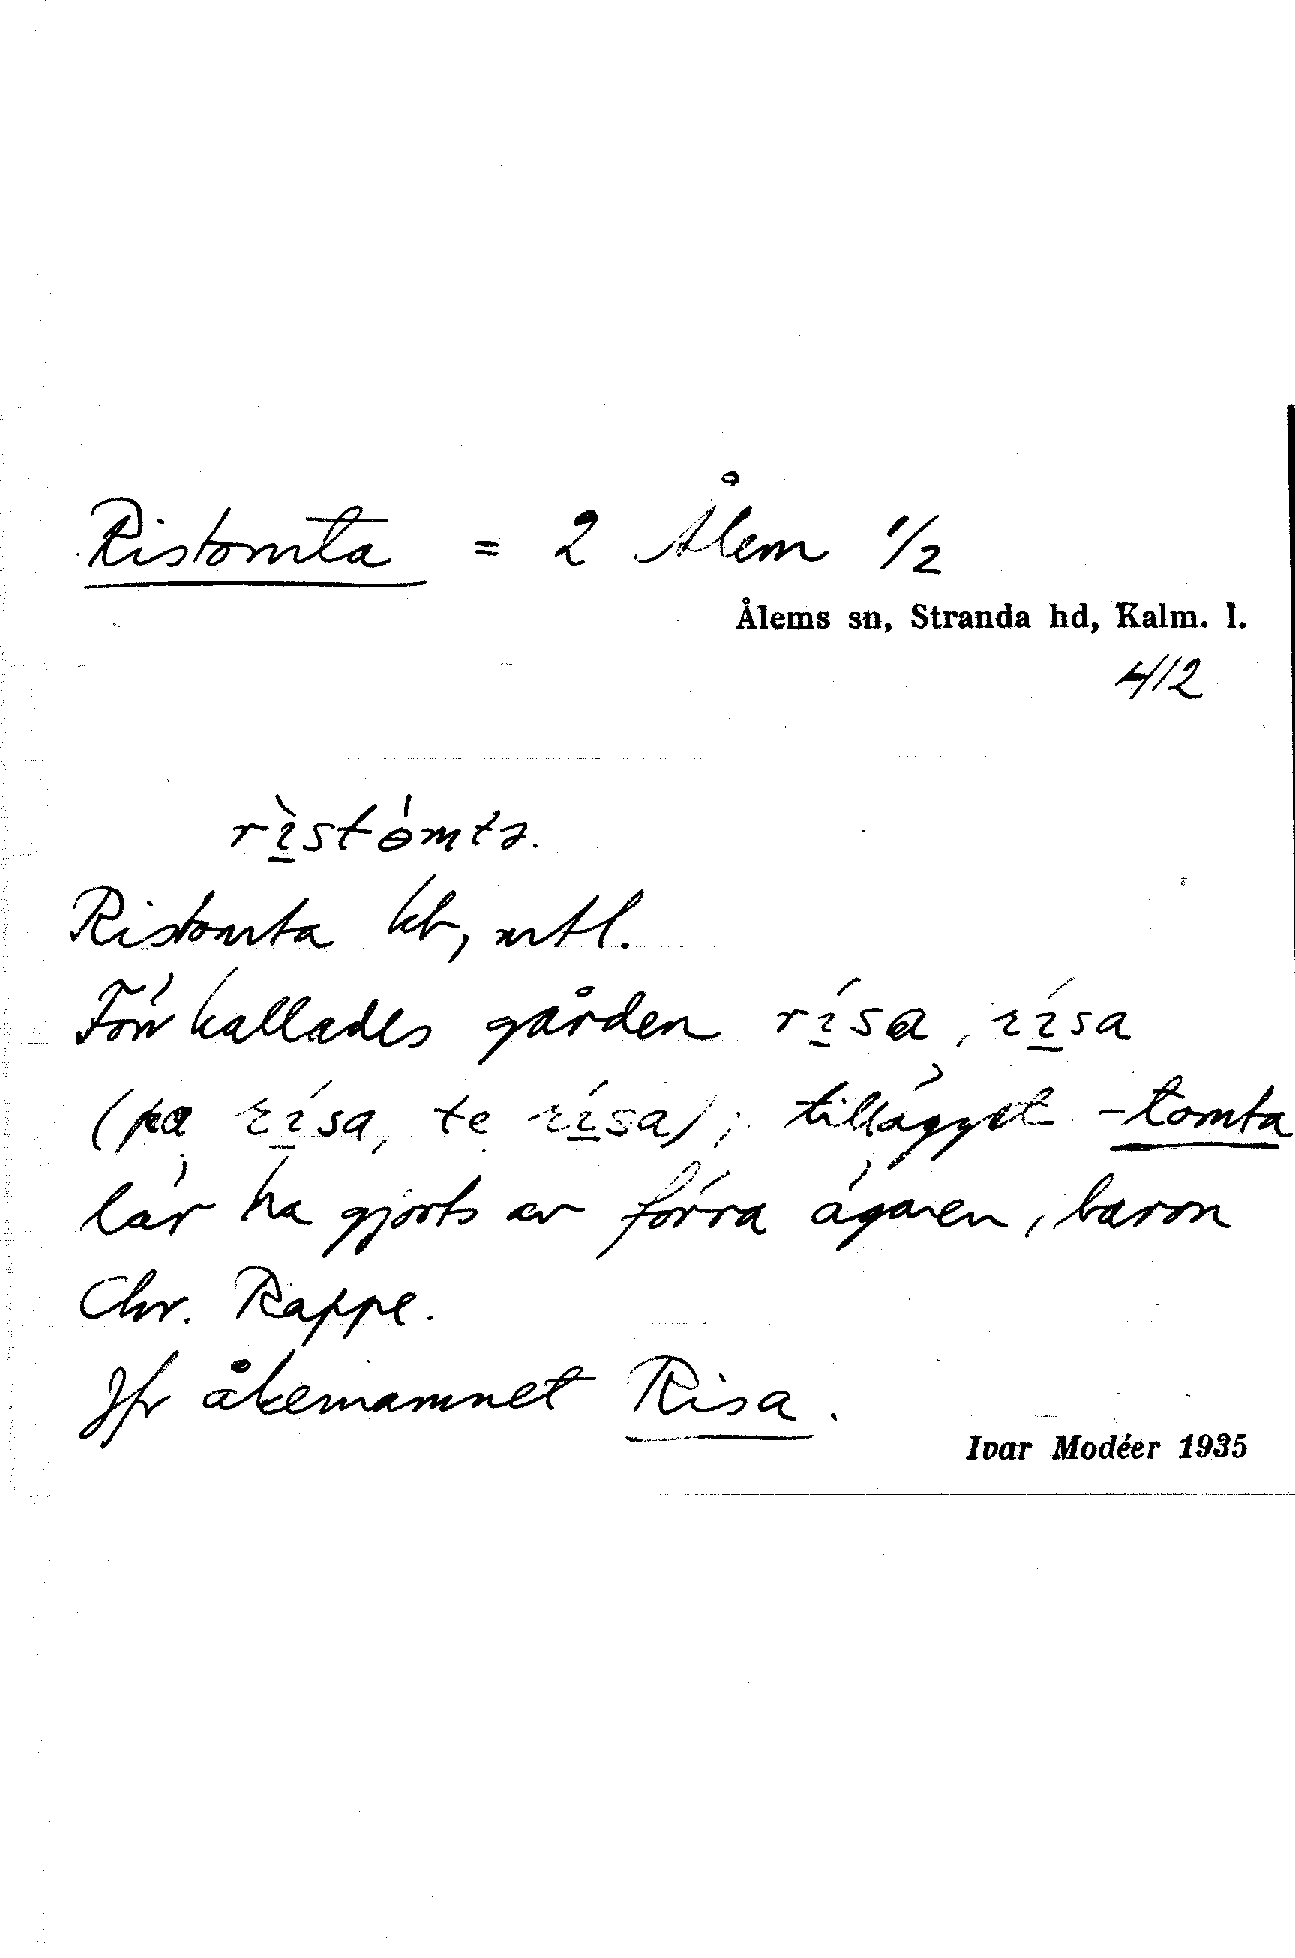 Ristomta = 2 Ålem 1/2
Ålems sn, Stranda hd, Kalm. l.
412
rı̱̀stɵ́mta.
Ristomta kb, mtl.
Förr kallades gården rı̱́sa, rı̱́sa
(pa rı̱́sa, te rı̱́sa); tillägget -tomta
lär ha gjorts av förra ägaren, baron
Chr. Rappe.
Jfr åkernamnet Risa.
Ivar Modéer 1935